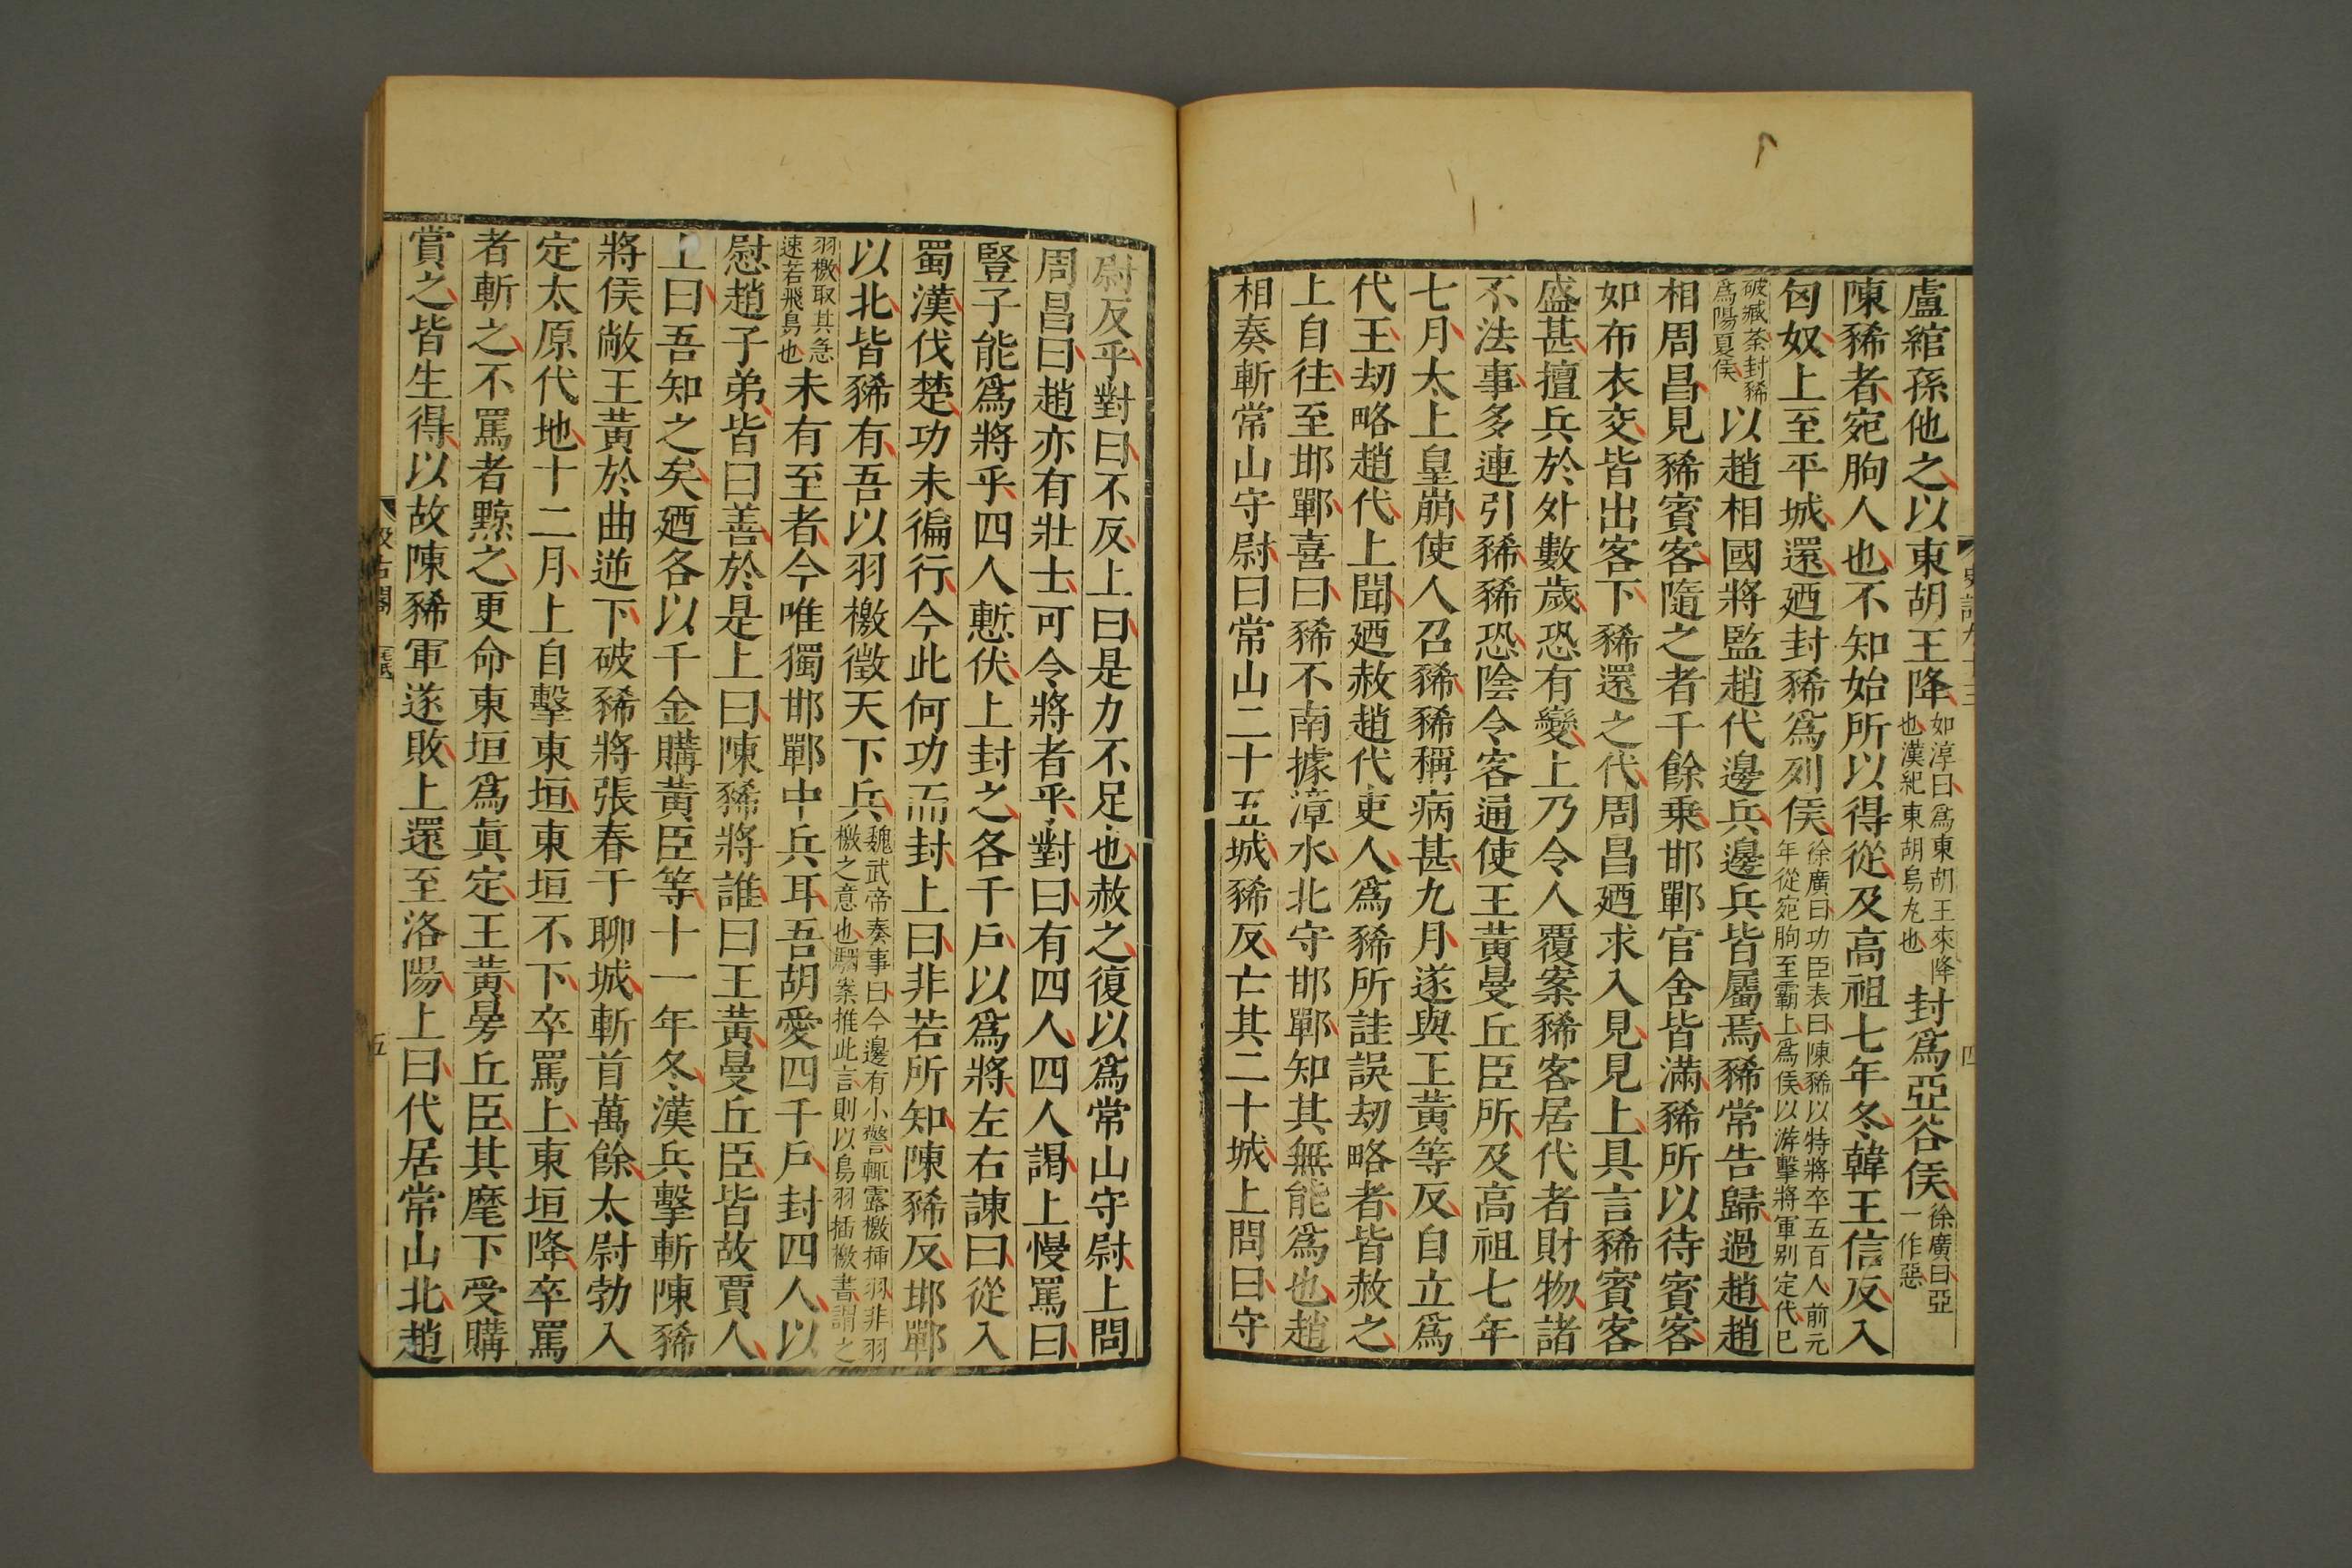 盧綰孫他之以東胡王降如淳曰爲東胡王來降也漢紀東胡烏丸也封爲亞谷侯徐廣曰亞一作惡
陳豨者宛朐人也不知始所以得從及高祖七年冬韓王信反入
匈奴上至平城還廼封豨爲列侯徐廣曰功臣表曰陳豨以特將卒五百人前元年從宛朐至霸上爲侯以游擊將軍别定代已
破臧荼封豨爲陽夏侯以趙相國將監趙代邊兵邊兵皆屬焉豨常告歸過趙趙
相周昌見豨賓客隨之者千餘乗邯鄲官舍皆滿豨所以待賓客
如布衣交皆出客下豨還之代周昌廼求入見見上具言豨賓客
盛甚擅兵於外數歲恐有變上乃令人覆案豨客居代者財物諸
不法事多連引豨豨恐陰令客通使王黄曼丘臣所及高祖七年
七月太上皇崩使人召豨豨稱病甚九月遂與王黄等反自立爲
代王劫略趙代上聞廼赦趙代吏人爲豨所詿誤劫略者皆赦之
上自往至邯鄲喜曰豨不南據漳水北守邯鄲知其無能爲也趙
相奏斬常山守尉曰常山二十五城豨反亡其二十城上問曰守
尉反乎對曰不反上曰是力不足也赦之復以爲常山守尉上問
周昌曰趙亦有壯士可令將者乎對曰有四人四人謁上慢罵曰
豎子能爲將乎四人慙伏上封之各千戶以爲將左右諫曰從入
蜀漢伐楚功未徧行今此何功而封上曰非若所知陳豨反邯鄲
以北皆豨有吾以羽檄徵天下兵魏武帝奏事曰今邊有小警輒露檄插羽非羽檄之意也駰案推此言則以鳥羽插檄書謂之
羽檄取其急速若飛鳥也未有至者今唯獨邯鄲中兵耳吾胡愛四千戶封四人以
慰趙子弟皆曰善於是上曰陳豨將誰曰王黄曼丘臣皆故賈人
上曰吾知之矣廼各以千金購黄臣等十一年冬漢兵擊斬陳豨
將侯敞王黄於曲逆下破豨將張春于聊城斬首萬餘太尉勃入
定太原代地十二月上自擊東垣東垣不下卒罵上東垣降卒罵
者斬之不罵者黥之更命東垣爲眞定王黄曼丘臣其麾下受購
賞之皆生得以故陳豨軍遂敗上還至洛陽上曰代居常山北趙
汲古閣
五